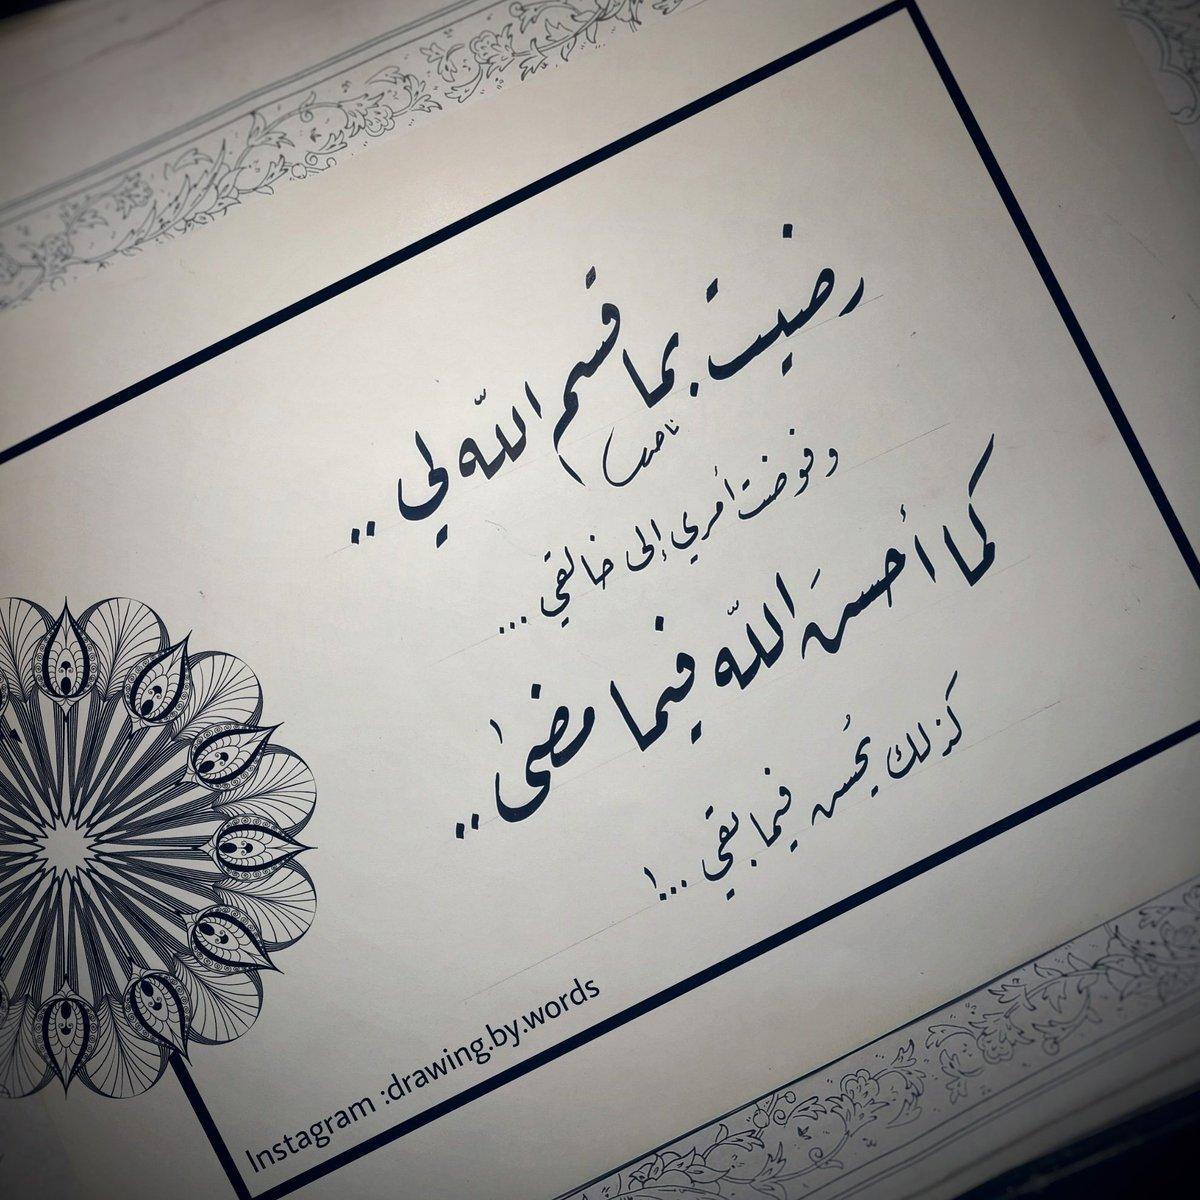 رضيت بما قسم الله لي ..
وفوضت أمري إلى خالقي ...
كما أحسنَ الله فيما مضىٰ ..
كذلك يُحسن فيما بقي ...!
Instagram :drawing.by.words